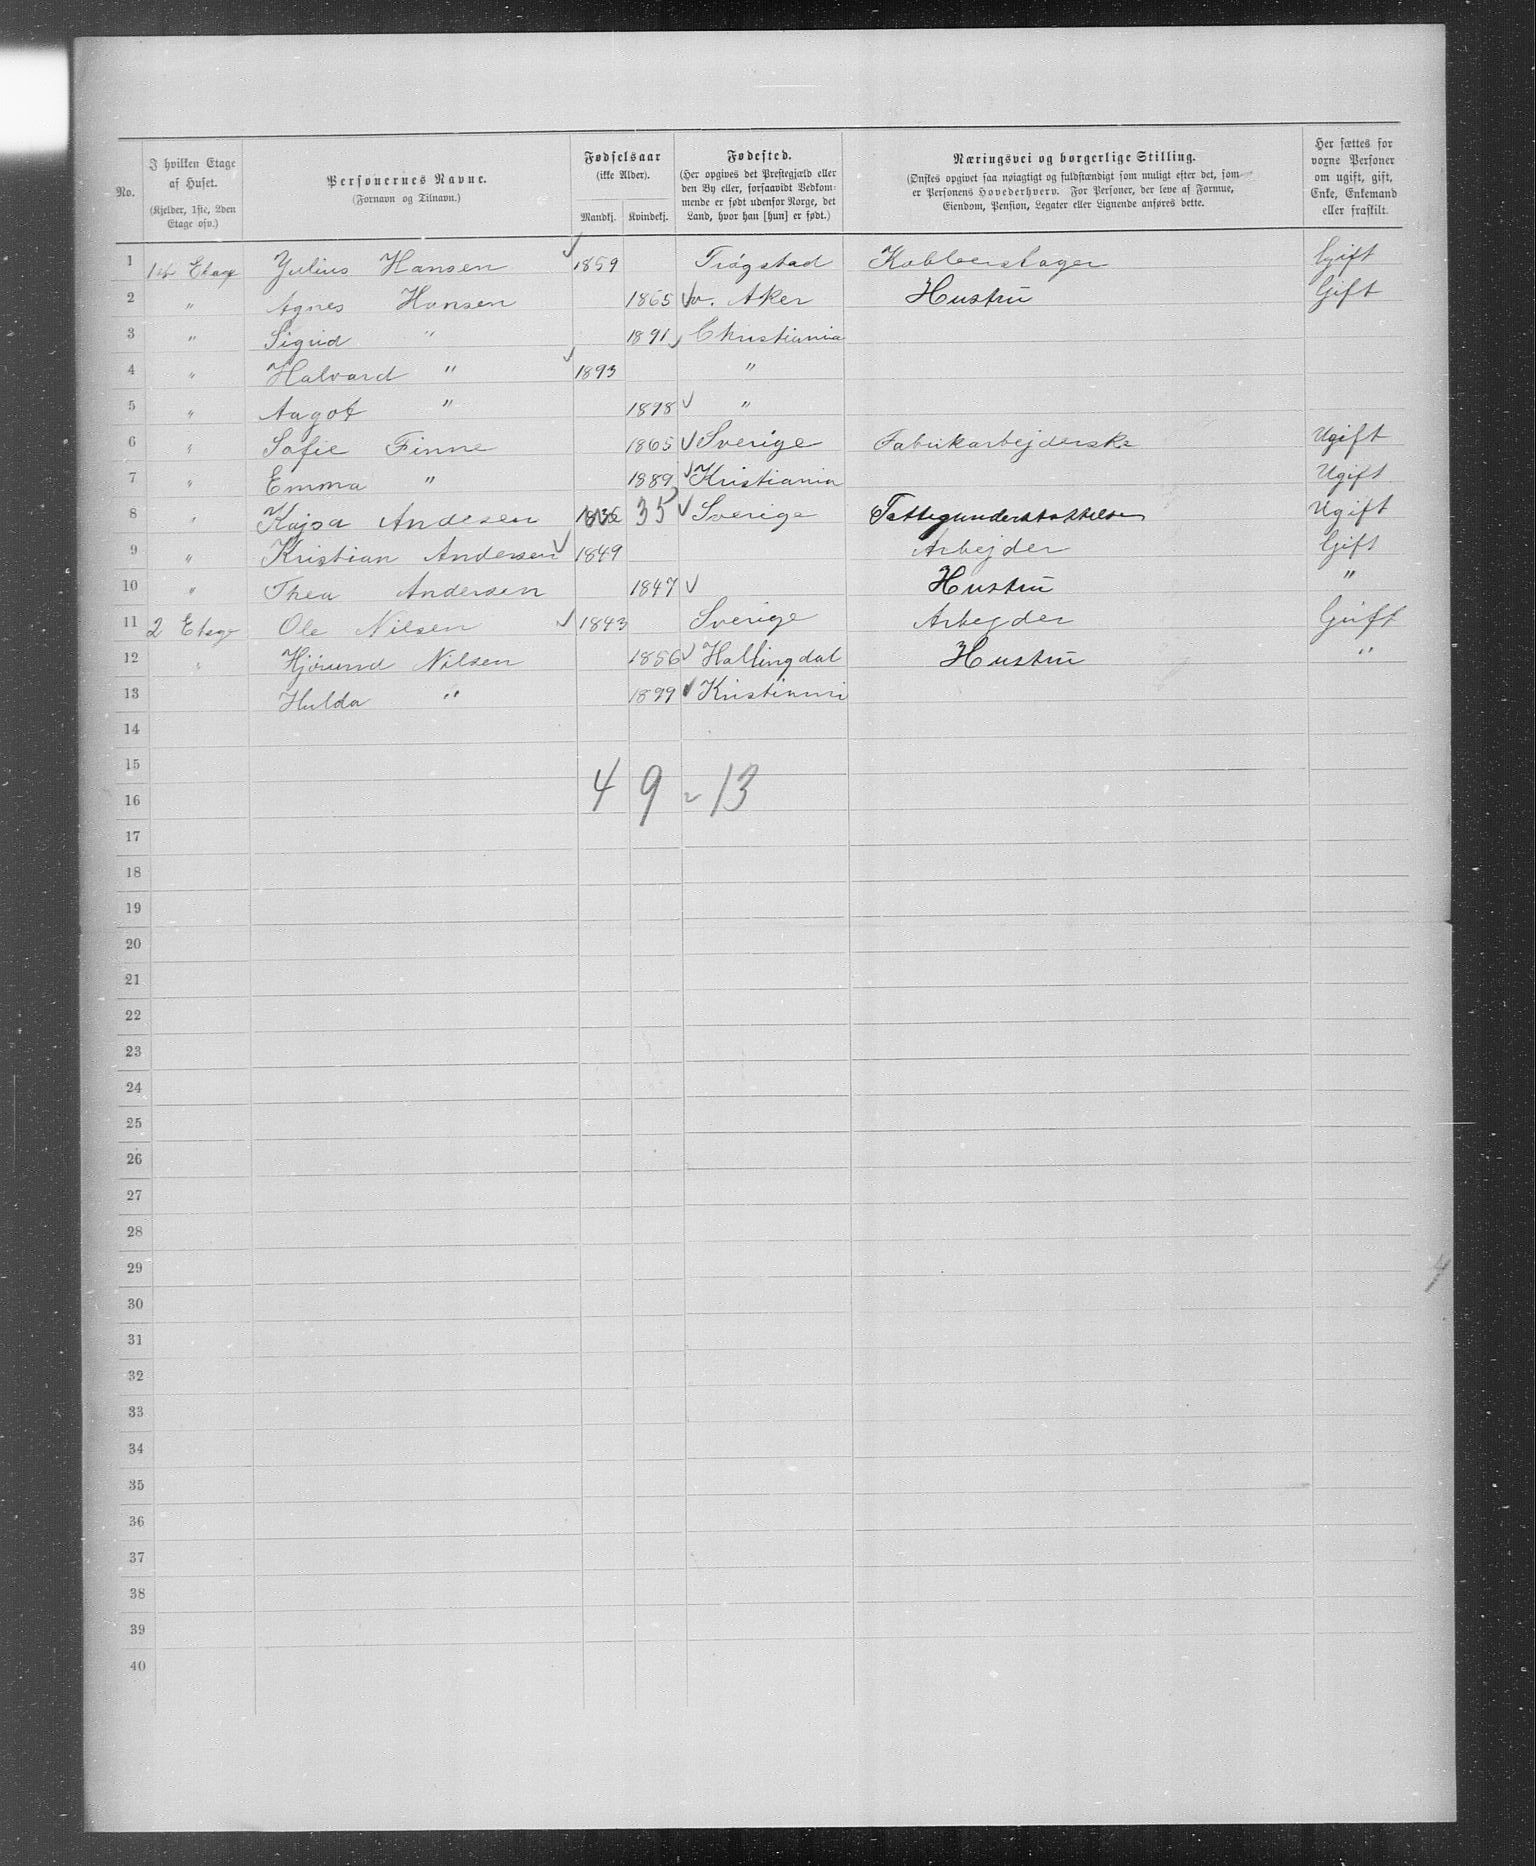 No.
I hvilken Etage af Huset.
(Kjelder, 1ste, 2den Etage osv.)
Personernes Navne.
(Fornavn og Tilnavn.)
Fødselsaar
(ikke Alder).
Mandkj. Kvindekj.
Fødested.
(Her opgives det Prestegjæld eller
den By eller, forsaavidt Vedkom-
mende er født udenfor Norge, det
Land, hvor han [hun] er født.)
Næringsvei og borgerlige Stilling.
(Ønskes opgivet saa nøiagtigt og fuldstændigt som muligt efter det, som
er Personens Hovederhverv. For Personer, der leve af Formue,
Eiendom, Pension, Legater eller Lignende anføres dette.
Her sættes for
voxne Personer
om ugift, gift,
Enke, Enkemand
eller fraskilt.
1 1st Etage Julius Hansen 1859 Trøgstad Kobberslager Gift
2 " Agnes Hansen 1865 v. Aker Hustru Gift
3 " Sigrid " 1891 Christiania
4 " Halvard " 1893 "
5 " Aagot " 1898 "
6 " Sofie Finne 1865 Sverige Fabrikarbejderske Ugift
7 " Emma " 1889 Kristiania Ugift
8 " Kajsa Andesen 35 Sverige Fattigunderstøttelse Ugift
9 " Kristian Andersen 1849 Arbejder Gift
10 " Thea Andersen 1847 Hustru "
11 2 Etage Ole Nilsen 1843 Sverige Arbejder Gift
12 " Hjørund Nilsen 1856 Hallingdal Hustru "
13 Hulda " 1899 Kristiania
14
15
4 9 = 13
16
17
18
19
20
21
22
23
24
25
26
27
28
29
4
30
31
32
33
34
35
36
37
38
39
40